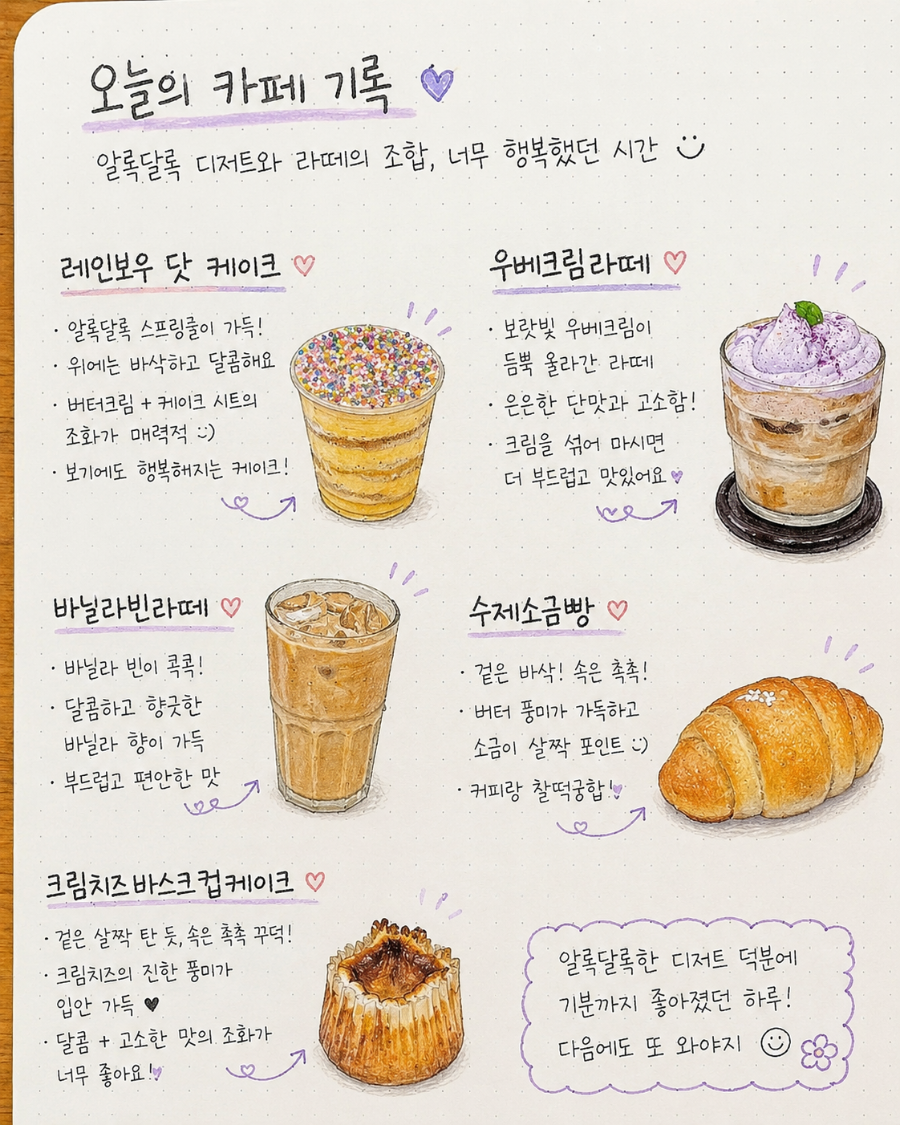 오늘의 카페 기록
알록달록 디저트와 라떼의 조합, 너무 행복했던 시간
레인보우 닷 케이크
· 알록달록 스프링클이 가득!
· 위에는 바삭하고 달콤해요
· 버터크림 + 케이크 시트의
조화가 매력적 :)
· 보기에도 행복해지는 케이크!
우베크림라떼
· 보랏빛 우베크림이
듬뿍 올라간 라떼
· 은은한 단맛과 고소함!
· 크림을 섞어 마시면
더 부드럽고 맛있어요
바닐라빈라떼
· 바닐라 빈이 콕콕!
· 달콤하고 향긋한
바닐라 향이 가득
· 부드럽고 편안한 맛
수제소금빵
· 겉은 바삭! 속은 촉촉!
· 버터 풍미가 가득하고
소금이 살짝 포인트 :)
· 커피랑 찰떡궁합!
크림치즈바스크컵케이크
· 겉은 살짝 탄 듯, 속은 촉촉 꾸덕!
· 크림치즈의 진한 풍미가
입안 가득 ♥
· 달콤 + 고소한 맛의 조화가
너무 좋아요!
알록달록한 디저트 덕분에
기분까지 좋아졌던 하루!
다음에도 또 와야지